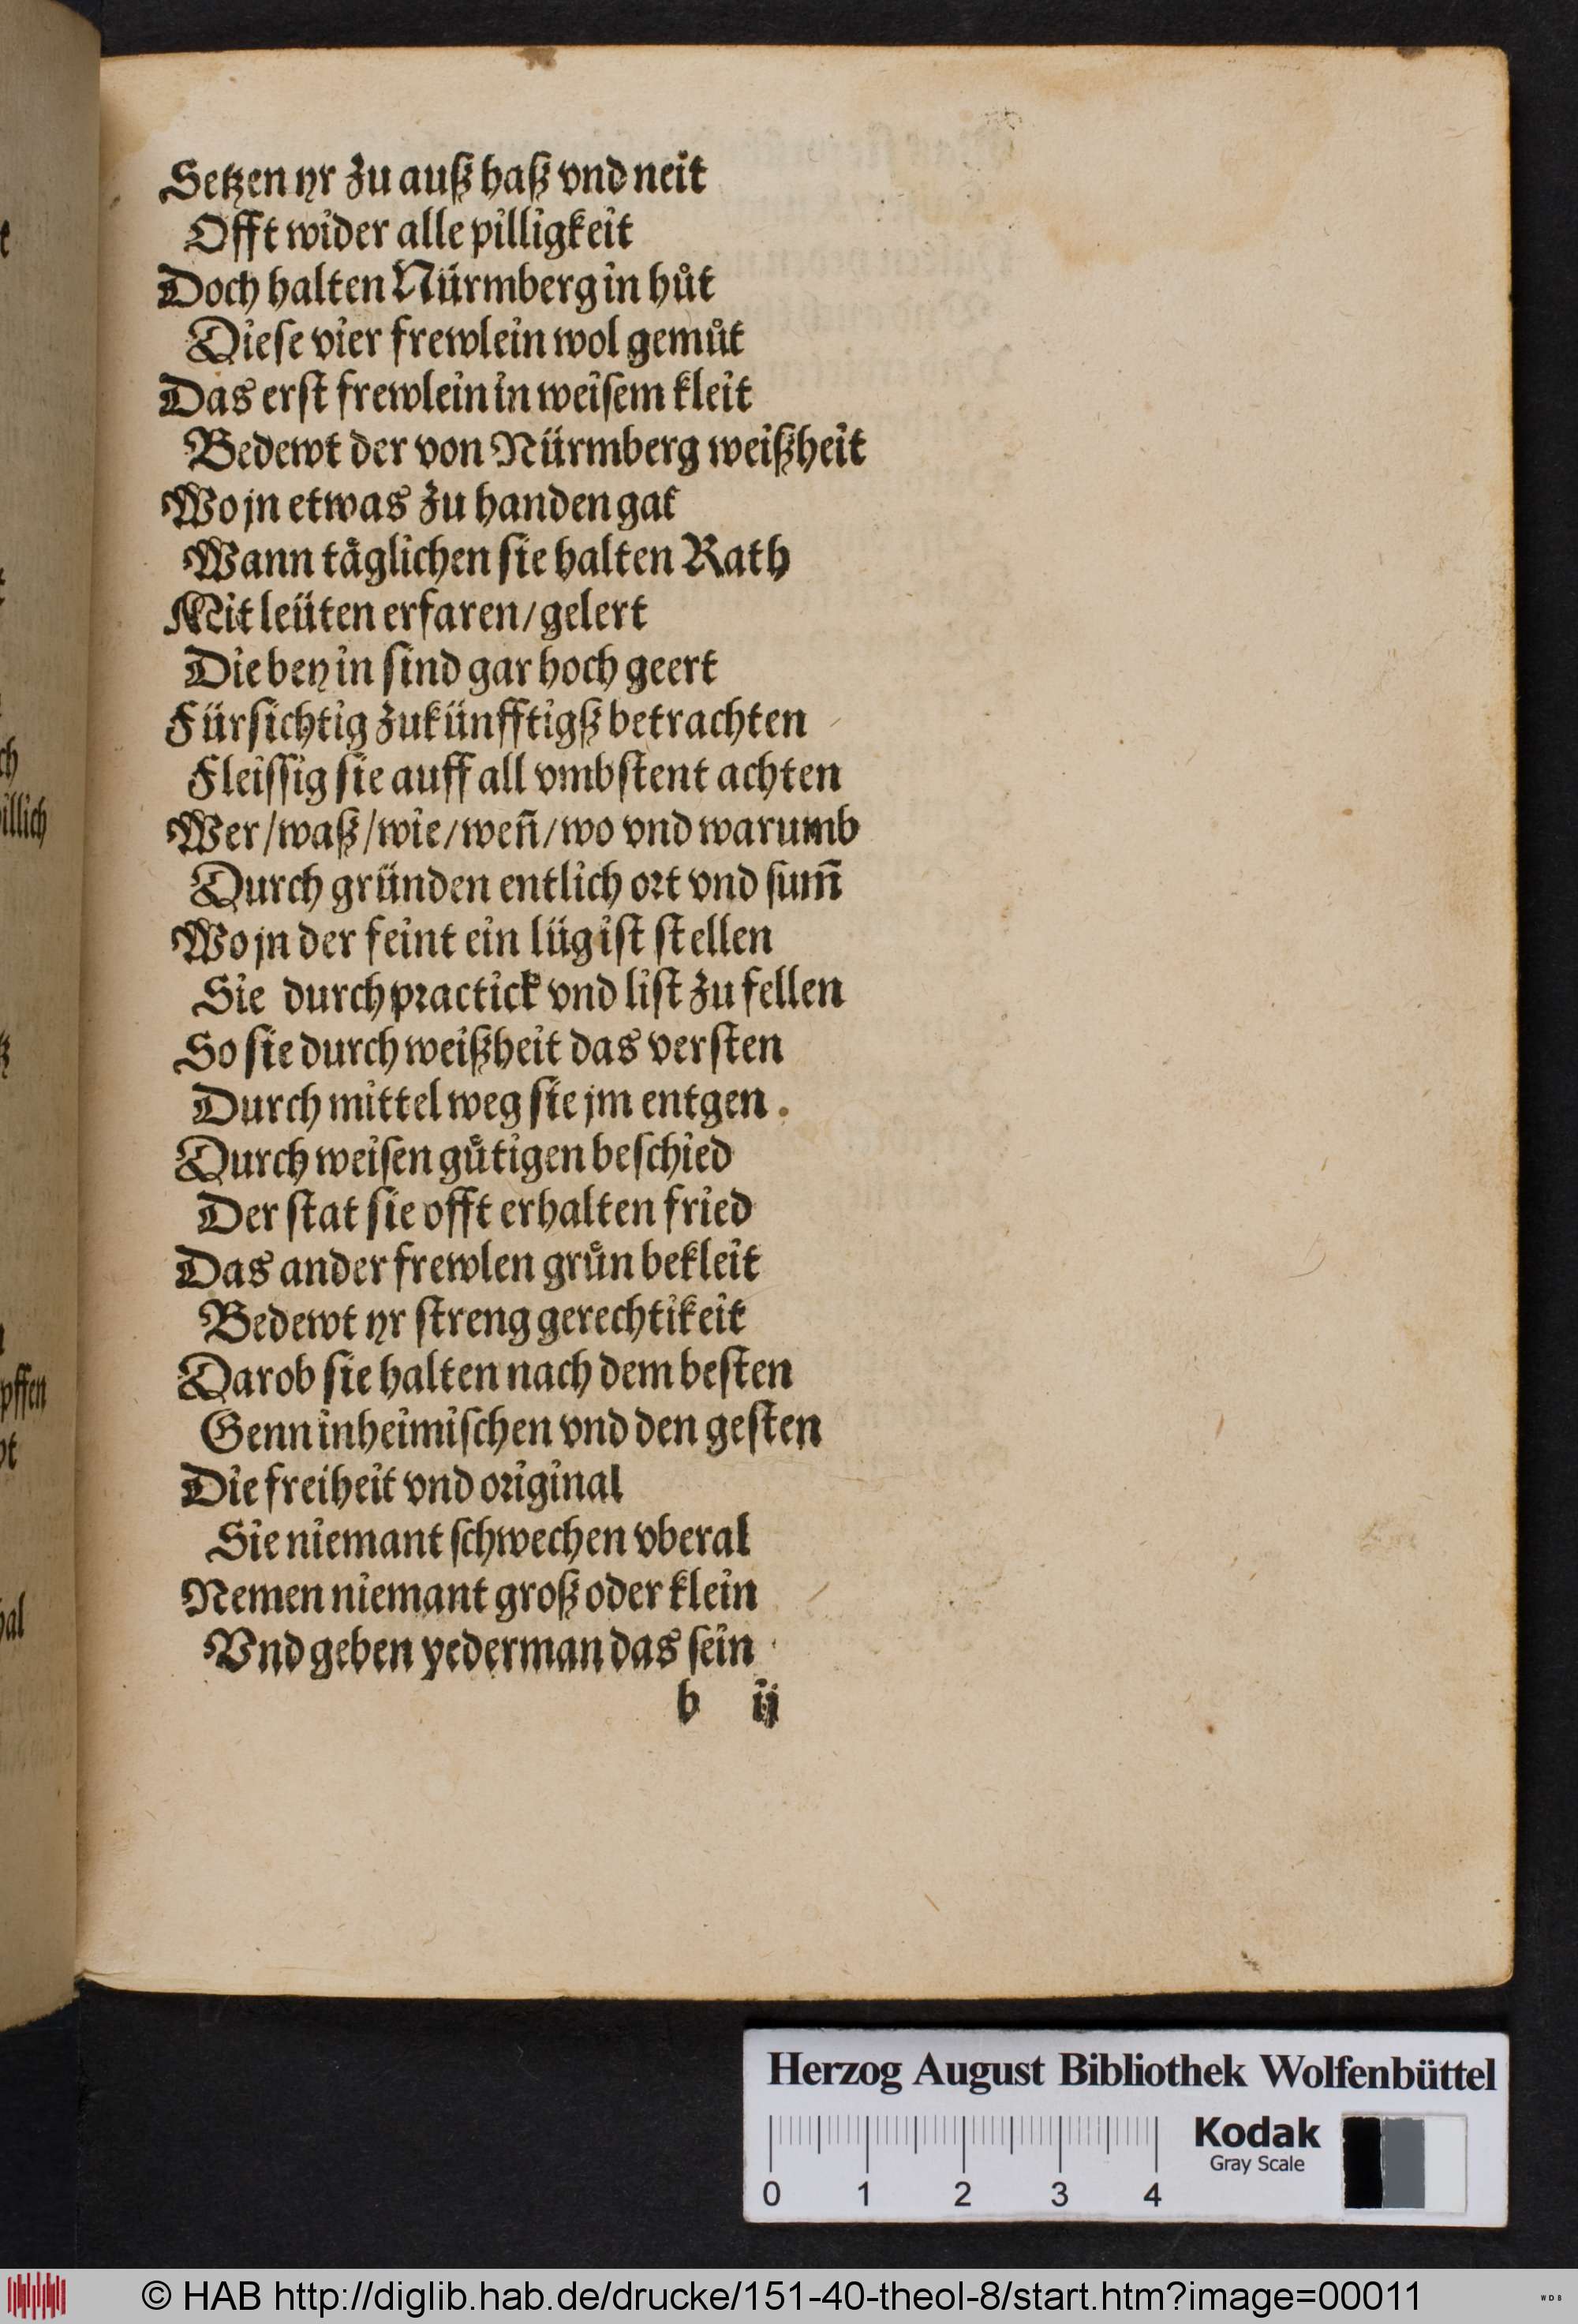 Setzen yr zu auß haß vnd neit
Offt wider alle pilligkeit
Doch halten Nürmberg in hůt
Dieſe vier frewlein wol gemůt
Das erſt frewlein in weiſem kleit
Bedewt der von Nürmberg weißheit
Wo jn etwas zu handen gat
Wann tåglichen ſie halten Rath
Mit leüten erfaren/gelert
Die bey in ſind gar hoch geert
Fürſichtig zukünfftigß betrachten
Fleiſſig ſie auff all vmbſtent achten
Wer/waß/wie/weñ/wo vnd warumb
Durch gründen entlich ort vnd sum̃
Wo jn der feint ein lüg iſt ſtellen
Sie durch practick vnd liſt zu fellen
So ſie durch weißheit das verſten
Durch mittel weg ſie jm entgen.
Durch weiſen gůtigen beſchied
Der ſtat ſie offt erhalten fried
Das ander frewlen grůn bekleit
Bedewt yr ſtreng gerechtikeit
Darob ſie halten nach dem beſten
Genn inheimiſchen vnd den geſten
Die freiheit vnd original
Sie niemant ſchwechen vberal
Nemen niemant groß oder klein
Vnd geben yederman das ſein
b ij
illich
pffen
Herzog August Bibliothek Wolfenbüttel
Kodak
Gray Scale
0 1 2 3 4
© HAB http://diglib.hab.de/drucke/151-40-theol-8/start.htm?image=00011
WDB